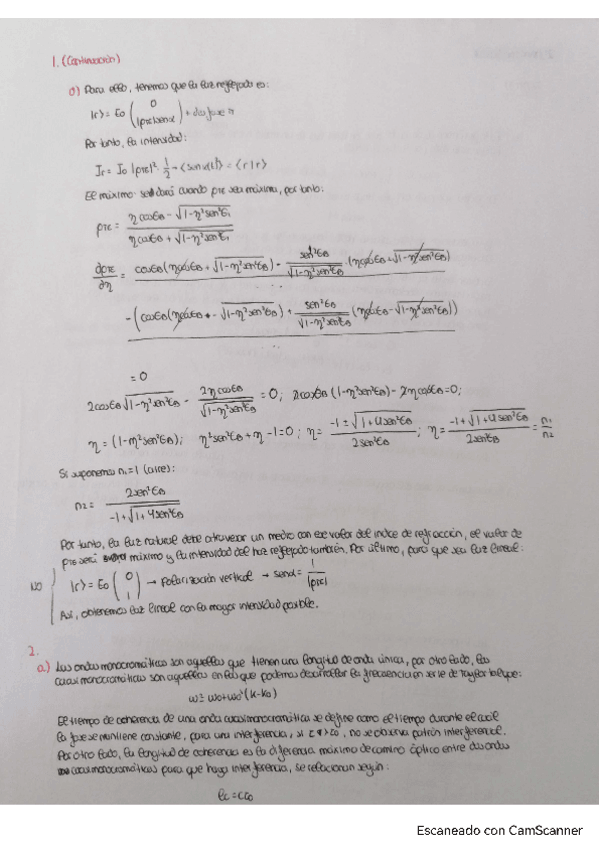 1. (Continuación)
d) Para ello, tenemos que la luz reflejada es:
|r⟩ = E₀ (0 |ρre|senα) + desfase π
Por tanto, la intensidad:
Ir = I₀ |ρre|² · 1/2 → ⟨sen²α⟩ = ⟨r|r⟩
El máximo se dará cuando ρre sea máxima, por tanto:
= 0
Si suponemos n₁ = 1 (aire):
n₂ = 2sen²εB / (-1+√(1+4sen²εB))
Por tanto, la luz natural debe atravesar un medio con ese valor del índice de refracción, el valor de
ρre será máximo y la intensidad del haz reflejado también. Por último, para que sea luz lineal:
NO
|r⟩ = E₀ (0 1) → Polarización vertical → senα = 1/|ρre|
Así, obtenemos luz lineal con la mayor intensidad posible.
2.
a) Las ondas monocromáticas son aquellas que tienen una longitud de onda única, por otro lado, las
cuasimonocromáticas son aquellas en las que podemos desarrollar la frecuencia en serie de Taylor tal que:
ω ≅ ω₀ + ω₀' (k-k₀)
El tiempo de coherencia de una onda cuasimonocromática se define como el tiempo durante el cual
la fase se mantiene constante, para una interferencia, si τ > τ₀, no se observa patrón interferencial.
Por otro lado, la longitud de coherencia es la diferencia máxima de camino óptico entre dos ondas
cuasimonocromáticas para que haya interferencia, se relacionan según:
lc = cτ₀
Escaneado con CamScanner